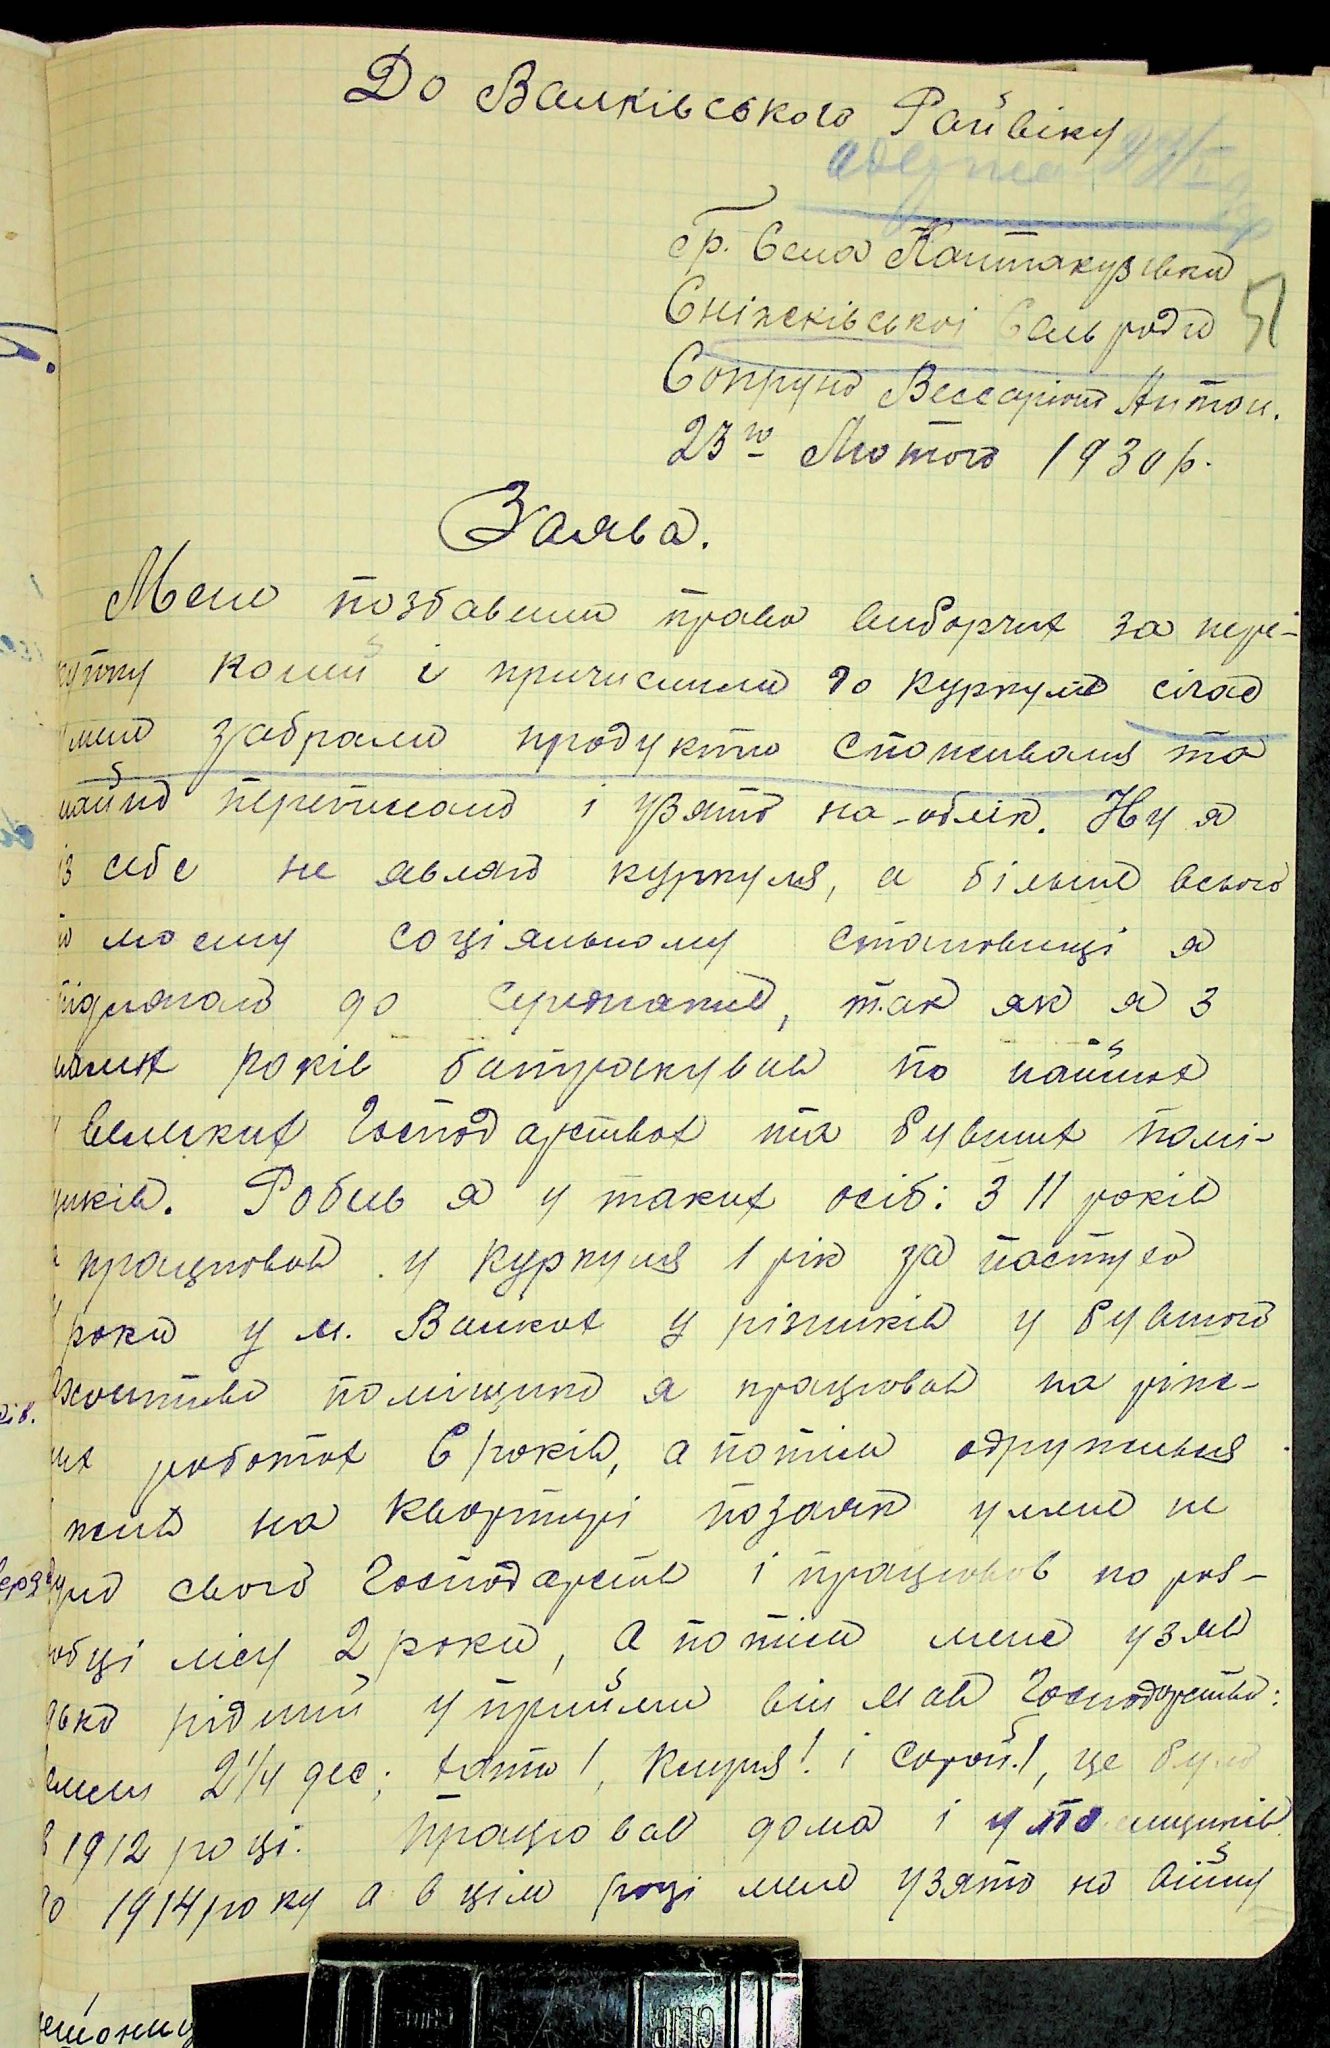 До Валківського Райвіку
гр. Села Кантакузівки
Сніжківської Сельради
Сопруна Вессаріона Антон.
23го Лютого 1930 р.
Заява.
Мене позбавили права виборчих за пері-
купку коний і причислили до куркулів сігад
мине забрали продукти споживаня та
майно переписано і узято на-облік. Ну я
із себе не являю куркуля, а більше всього
по моему соціяльному становищі я
підлягаю до середняків, так як я з
малих років батракував по наймах
у великих Господарствах та бувших полі-
щиків. Робив я у таких осіб: З 11 років
я працював у куркуля 1 рік за пастуха
роки у м. Валках у різників у бувшого
поміщика я працював на ріже-
них роботах 6 років, а потім одружився
жив на квартирі позаяк умене не
було свого Господарств і працював по роз-
робці лісу 2 роки, а потім мене узяв
дько рідний у прийми він мав Господарство:
земли 2 1/4 дес; хати 1, клуня 1 і сарай 1, це було
в 1912 році. Працював дома і у поміщиків
до 1914 року а в цім році мене узято на війну